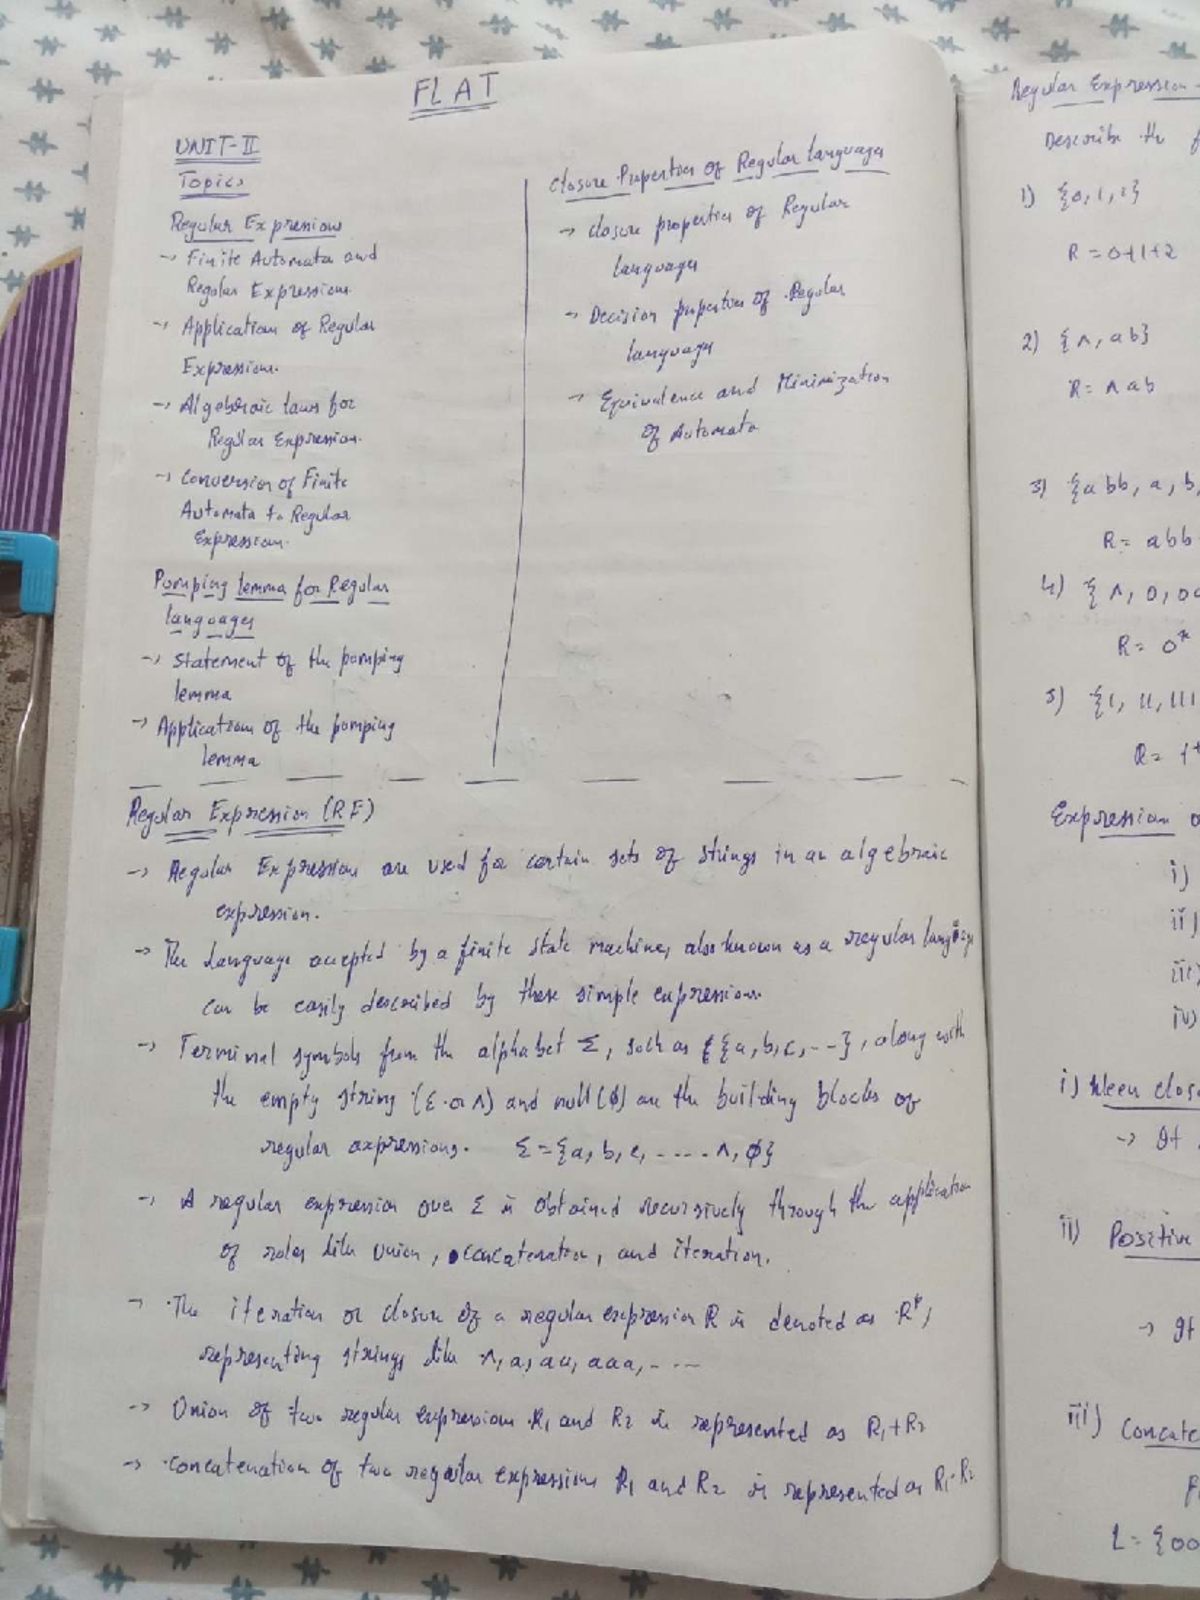 FLAT
UNIT-II
Topics
Regular Expressions
→ Finite Automata and
Regular Expressions.
→ Application of Regular
Expressions.
→ Algebraic laws for
Regular Expression.
→ Conversion of Finite
Automata to Regular
Expression.
Pumping lemma for Regular
languages
→ statement of the pumping
lemma
→ Applications of the pumping
lemma
Closure Properties of Regular languages
→ closure properties of Regular
languages
→ Decision properties of Regular
languages
→ Equivalence and Minimization
of Automata
Regular Expression (RE)
→ Regular Expressions are used for certain sets of strings in an algebraic
expression.
→ The language accepted by a finite state machine, also known as a regular language
can be easily described by these simple expressions.
→ Terminal symbols from the alphabet Σ, such as {{a, b, c, ---}, along with
the empty string (ε or ∧) and null (ϕ) are the building blocks of
regular expressions. Σ = {a, b, c, ..... ∧, ϕ}
→ A regular expression over Σ is obtained recursively through the application
of rules like union, concatenation, and iteration.
→ The iteration or closure of a regular expression R is denoted as R*,
representing strings like ∧, a, aa, aaa, ----
→ Union of two regular expressions R₁ and R₂ is represented as R₁+R₂
→ concatenation of two regular expressions R₁ and R₂ is represented as R₁·R₂
Regular Expression -
Describe the f
1) {0, 1, 2}
R = 0+1+2
2) {∧, ab}
R = ∧ ab
3) {abb, a, b,
R = abb
4) {∧, 0, 00
R = 0*
5) {1, 11, 111
R = 1+
Expression o
i)
ii)
iii)
iv)
i) Kleen clos
→ It
ii) Positive
→ It
iii) Concate
L = {00